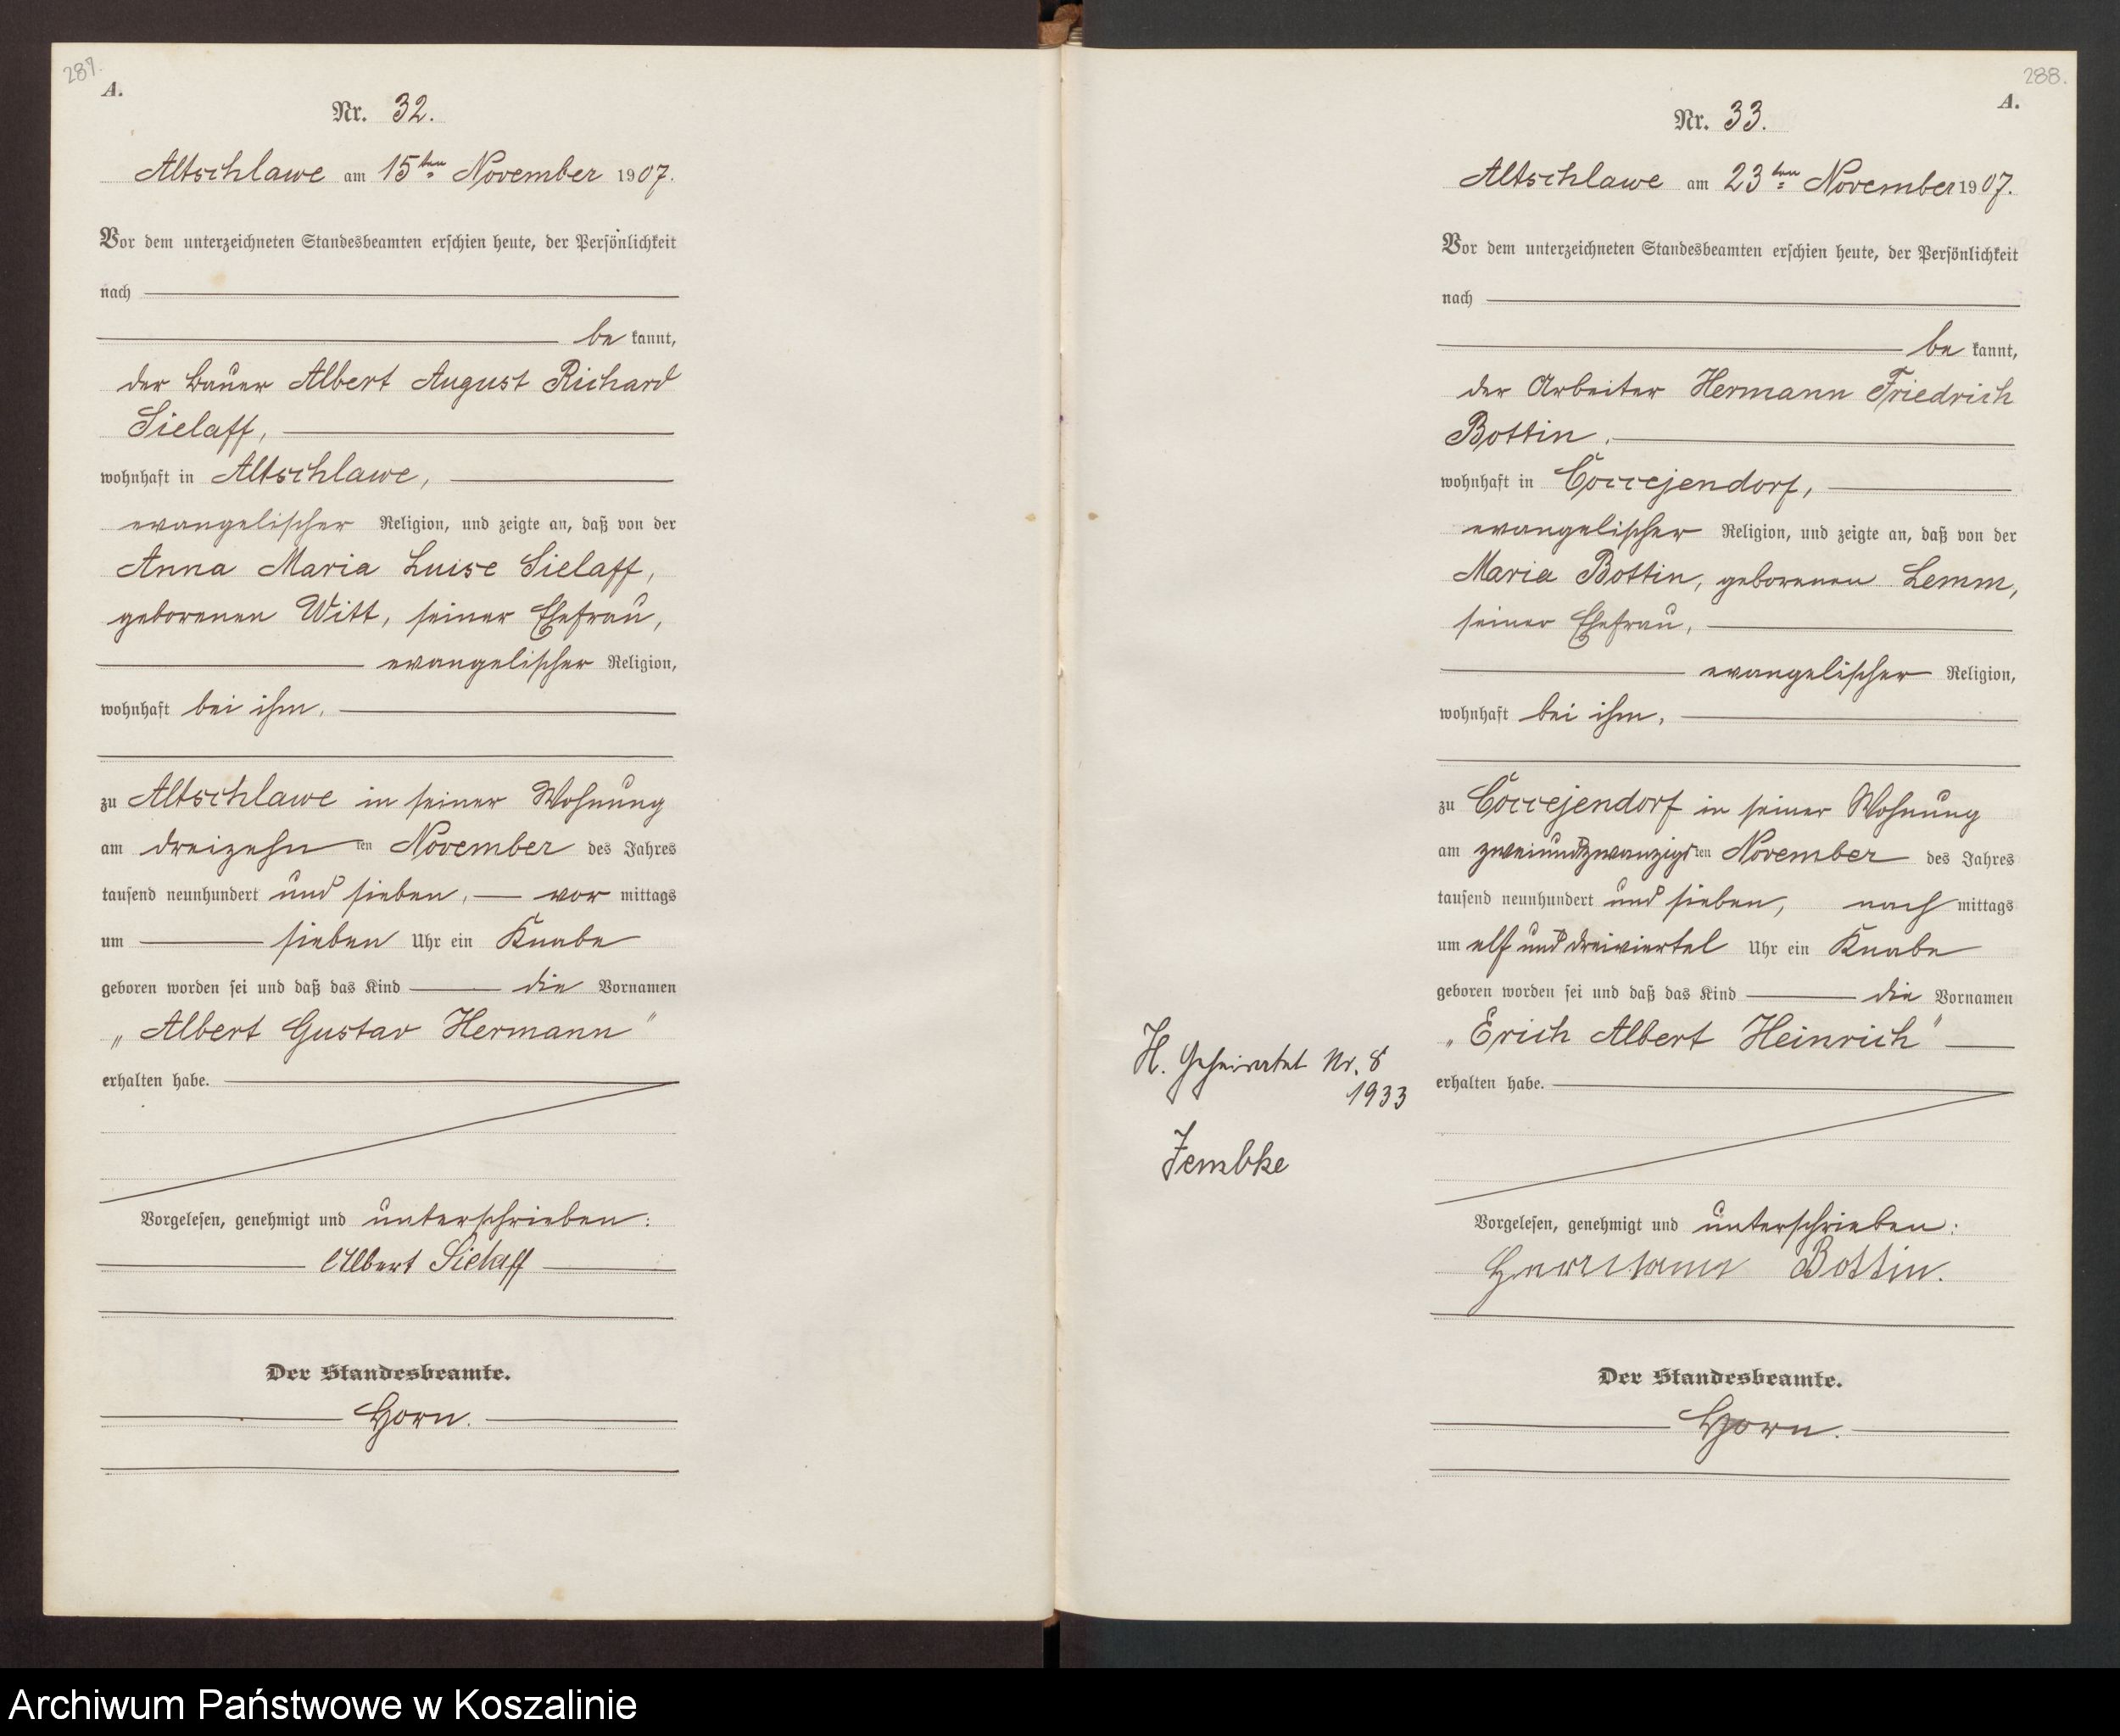 287.
A.
Nr. 32.
Altschlawe am 15ten November 1907.
Vor dem unterzeichneten Standesbeamten erschien heute, der Persönlichkeit
nach
be kannt,
der Bauer Albert August Richard
Sielaff,
wohnhaft in Altschlawe,
evangelischer Religion, und zeigte an, daß von der
Anna Maria Luise Sielaff,
geborenen Witt, seiner Ehefrau,
evangelischer Religion,
wohnhaft bei ihm,
zu Altschlawe in seiner Wohnung
am dreizehn ten November des Jahres
tausend neunhundert und sieben, vor mittags
um sieben Uhr ein Knabe
geboren worden sei und daß das Kind die Vornamen
„Albert Gustav Hermann"
erhalten habe.
Vorgelesen, genehmigt und unterschrieben:
Albert Sielaff
Der Standesbeamte.
Horn.
288.
A.
Nr. 33.
Altschlawe am 23ten November 1907.
Vor dem unterzeichneten Standesbeamten erschien heute, der Persönlichkeit
nach
be kannt,
der Arbeiter Hermann Friedrich
Bottin,
wohnhaft in Coccejendorf,
evangelischer Religion, und zeigte an, daß von der
Maria Bottin, geborenen Lemm,
seiner Ehefrau,
evangelischer Religion,
wohnhaft bei ihm,
zu Coccejendorf in seiner Wohnung
am zweiundzwanzigsten November des Jahres
tausend neunhundert und sieben, nach mittags
um elf und dreiviertel Uhr ein Knabe
geboren worden sei und daß das Kind die Vornamen
„Erich Albert Heinrich"
erhalten habe.
Vorgelesen, genehmigt und unterschrieben:
Herrmann Bottin.
Der Standesbeamte.
Horn.
H. Geheiratet Nr. 8
1933
Zembke
Archiwum Państwowe w Koszalinie